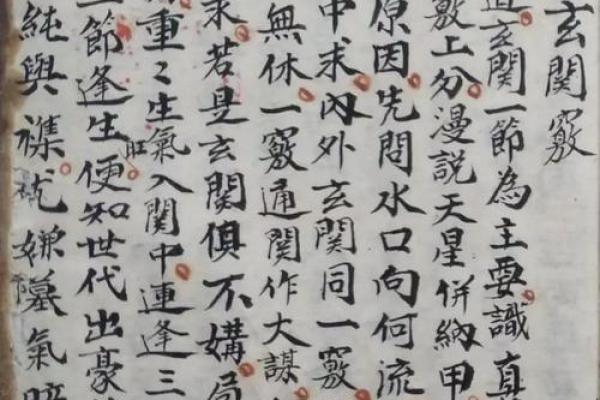 玄關竅
道玄關一節為主要識真
上分漫說天星併納甲
原因先問水口向何流
中求內外玄關同一竅
無休一竅通關作大謀
求若是玄關俱不媾局
重〻生氣入關中連逢三
節逢生旺便知世代出豪
純與襍尤嫌墓氣暗